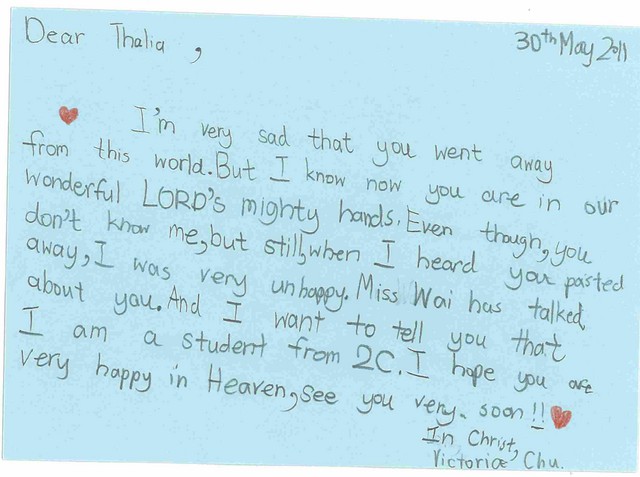 Dear Thalia,
30th May 2011
I'm very sad that you went away
from this world. But I know now you are in our
wonderful LORD's mighty hands. Even though, you
don't know me, but still, when I heard you pasted
away, I was very unhappy. Miss Wai has talked
about you. And I want to tell you that
I am a student from 2C. I hope you are
very happy in Heaven, see you very. soon!!
In Christ,
Victoria Chu.